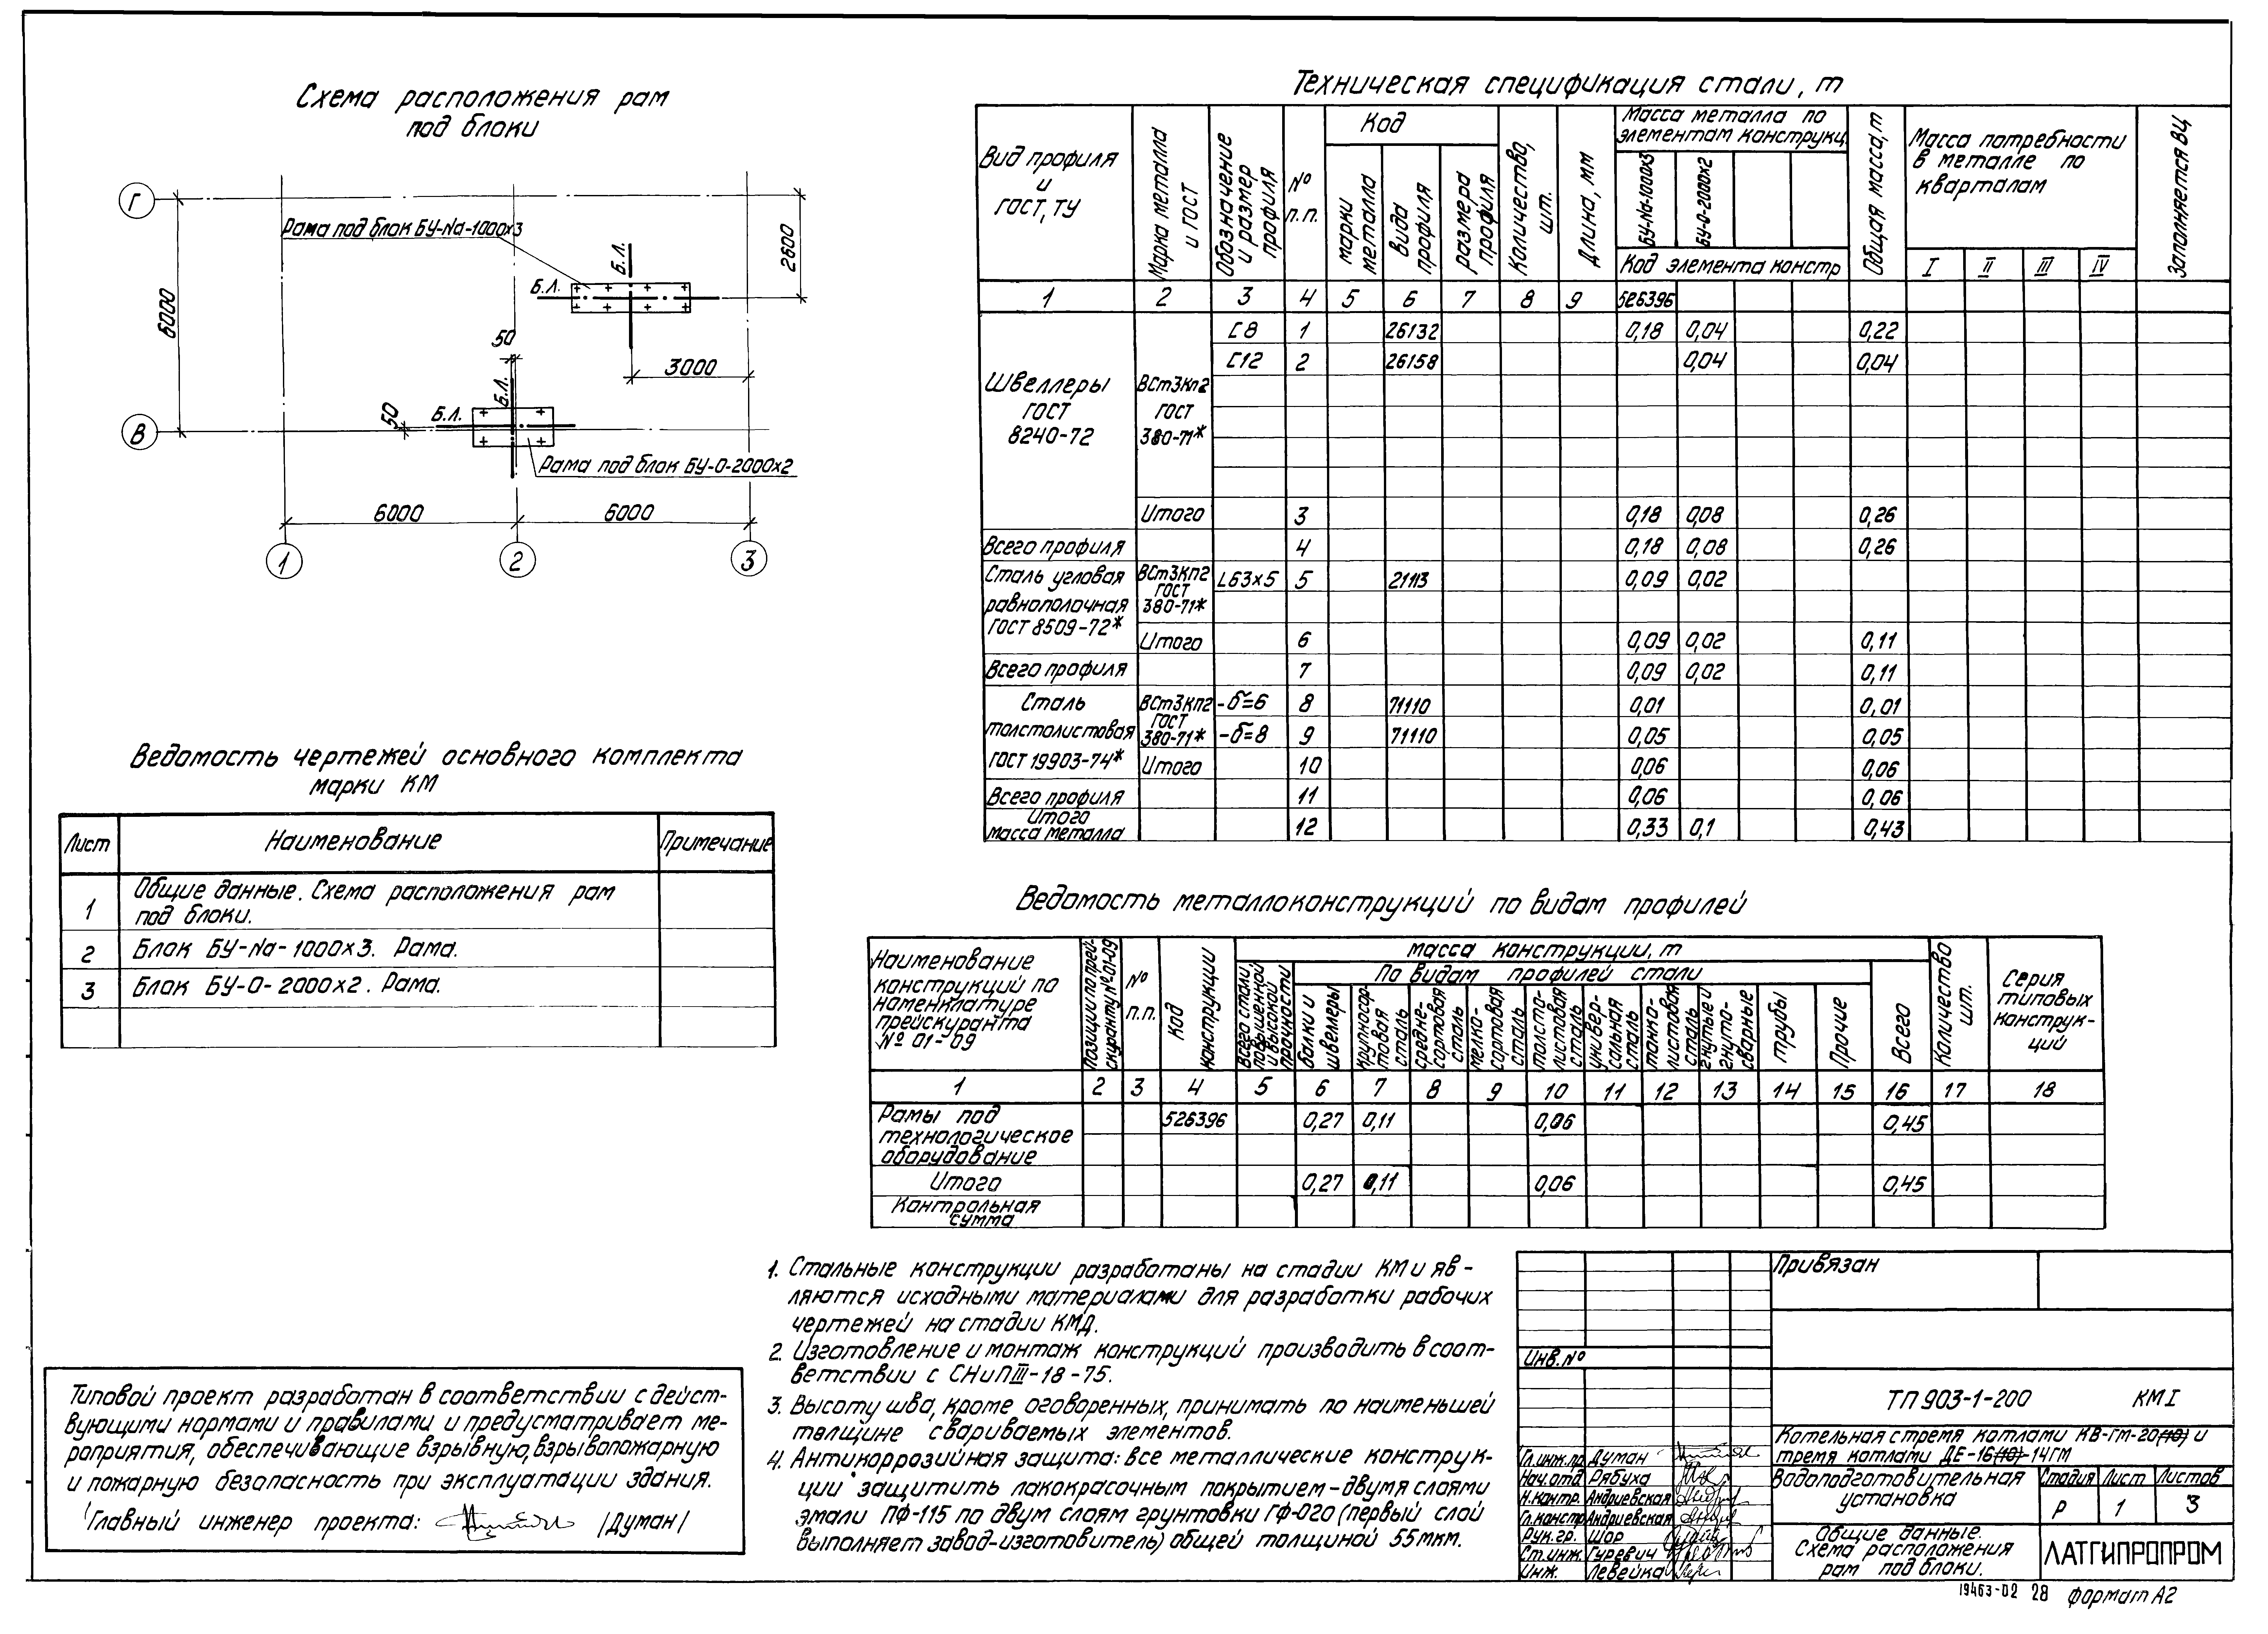 Схема расположения рам
под блоки
Г
Рама под блок БУ-Na-1000х3
Б.Л.
Б.Л.
2600
6000
50
3000
Б.Л.
Б.Л.
50
В
Рама под блок БУ-О-2000х2
6000
6000
1
2
3
Ведомость чертежей основного комплекта
марки КМ
Лист Наименование Примечание
1 Общие данные. Схема расположения рам
под блоки.
2 Блок БУ-Na-1000х3. Рама.
3 Блок БУ-О-2000х2. Рама.
Типовой проект разработан в соответствии с дейст-
вующими нормами и правилами и предусматривает ме-
роприятия, обеспечивающие взрывную, взрывопожарную
и пожарную безопасность при эксплуатации здания.
Главный инженер проекта: /Думан/
Техническая спецификация стали, т
Вид профиля
и
ГОСТ, ТУ
Марка металла
и ГОСТ
Обозначение
и размер
профиля
№
п.п.
Код
марки
металла
вида
профиля
размера
профиля
Количество,
шт.
Длина, мм
Масса металла по
элементам конструкц.
БУ-Na-1000х3
БУ-О-2000х2
Код элемента констр
Общая масса, т
Масса потребности
в металле по
кварталам
I II III IV
Заполняется ВЦ
1 2 3 4 5 6 7 8 9 526396
Швеллеры
ГОСТ
8240-72
ВСт3Кп2
ГОСТ
380-71*
[8 1 26132 0,18 0,04 0,22
[12 2 26158 0,04 0,04
Итого 3 0,18 0,08 0,26
Всего профиля 4 0,18 0,08 0,26
Сталь угловая
равнополочная
ГОСТ 8509-72*
ВСт3Кп2
ГОСТ
380-71*
L63х5 5 21113 0,09 0,02
Итого 6 0,09 0,02 0,11
Всего профиля 7 0,09 0,02 0,11
Сталь
толстолистовая
ГОСТ 19903-74*
ВСт3Кп2
ГОСТ
380-71*
-б=6 8 71110 0,01 0,01
-б=8 9 71110 0,05 0,05
Итого 10 0,06 0,06
Всего профиля 11 0,06 0,06
Итого
масса металла 12 0,33 0,1 0,43
Ведомость металлоконструкций по видам профилей
Наименование
конструкций по
номенклатуре
прейскуранта
№ 01-09
Позиции по прей-
скуранту № 01-09
№
п.п.
Код
конструкции
масса конструкции, т
Всего стали
повышенной
и высокой
прочности
По видам профилей стали
балки и
швеллеры
крупносор-
товая
сталь
средне-
сортовая
сталь
мелко-
сортовая
сталь
толсто-
листовая
сталь
универ-
сальная
сталь
тонко-
листовая
сталь
гнутые и
гнуто-
сварные
трубы
Прочие
Всего
Количество
шт.
Серия
типовых
конструк-
ций
1 2 3 4 5 6 7 8 9 10 11 12 13 14 15 16 17 18
Рамы под
технологическое
оборудование
526396 0,27 0,11 0,06 0,45
Итого 0,27 0,11 0,06 0,45
Контрольная
сумма
1. Стальные конструкции разработаны на стадии КМ и яв-
ляются исходными материалами для разработки рабочих
чертежей на стадии КМД.
2. Изготовление и монтаж конструкций производить в соот-
ветствии с СНиП III-18-75.
3. Высоту шва, кроме оговоренных, принимать по наименьшей
толщине свариваемых элементов.
4. Антикоррозийная защита: все металлические конструк-
ции защитить лакокрасочным покрытием-двумя слоями
эмали ПФ-115 по двум слоям грунтовки ГФ-020 (первый слой
выполняет завод-изготовитель) общей толщиной 55мкм.
Привязан
Инв.№
ТП 903-1-200 КМ I
Котельная с тремя котлами КВ-ГМ-20(10) и
тремя котлами ДЕ-16(10)-14ГМ
Гл.инж.пр. Думан
Нач.отд. Рябуха
Н.контр. Андриевская
Гл.констр. Андриевская
Рук.гр. Шор
Ст.инж. Гуревич
Инж. Левейка
Водоподготовительная
установка
Стадия Лист Листов
Р 1 3
Общие данные.
Схема расположения
рам под блоки.
ЛАТГИПРОПРОМ
19463-02 28 Формат А2